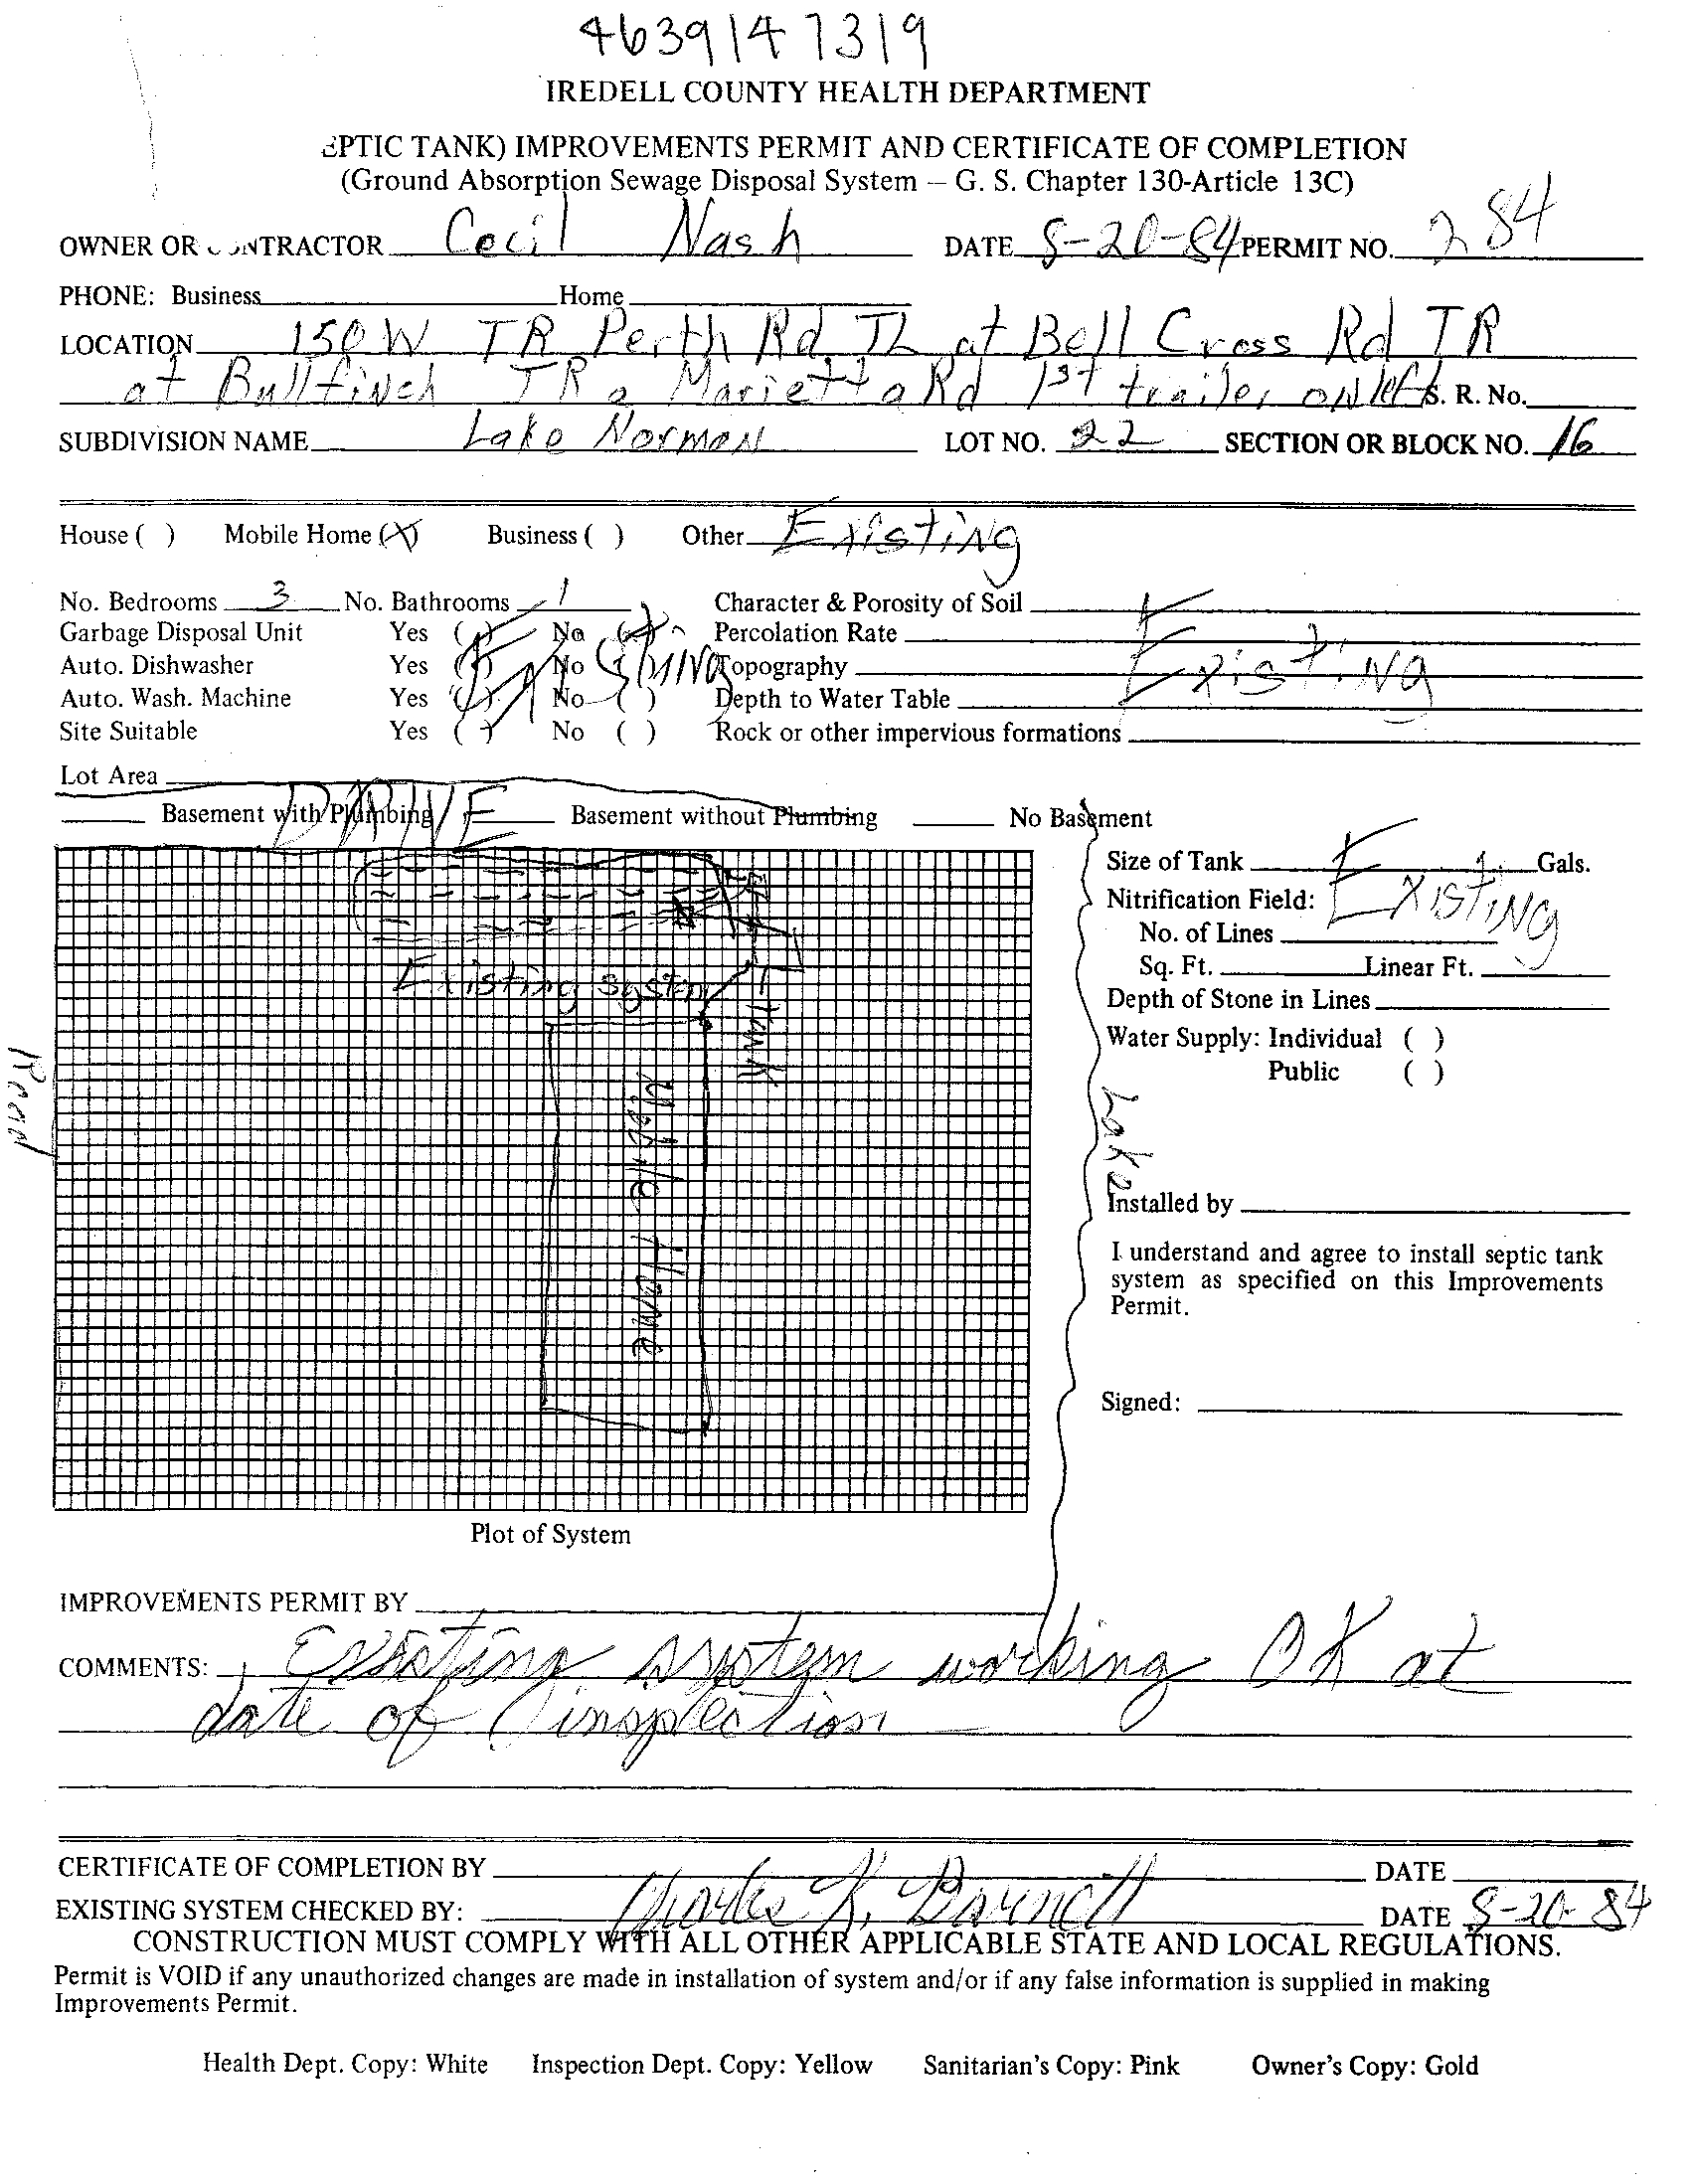 4639147319
IREDELL COUNTY HEALTH DEPARTMENT
EPTIC TANK) IMPROVEMENTS PERMIT AND CERTIFICATE OF COMPLETION
(Ground Absorption Sewage Disposal System – G. S. Chapter 130-Article 13C)
OWNER OR CONTRACTOR Cecil Nash DATE 8-20-84 PERMIT NO. 284
PHONE: Business Home
LOCATION 150 W TR Perth Rd. TL at Bell Cross Rd TR
at Bullfinch TR @ Marietta Rd 1st trailer on left S. R. No.
SUBDIVISION NAME Lake Norman LOT NO. 22 SECTION OR BLOCK NO. 16
House ( ) Mobile Home (X) Business ( ) Other Existing
No. Bedrooms 3 No. Bathrooms 1 Character & Porosity of Soil
Garbage Disposal Unit Yes ( ) No ( ) Percolation Rate
Auto. Dishwasher Yes ( ) No ( ) Existing Topography Existing
Auto. Wash. Machine Yes ( ) No ( ) Depth to Water Table
Site Suitable Yes ( ) No ( ) Rock or other impervious formations
Lot Area
Basement with Plumbing Basement without Plumbing No Basement
DRIVE
Size of Tank Gals.
Nitrification Field: Existing
No. of Lines
Sq. Ft. Linear Ft.
Existing System
Depth of Stone in Lines
tank
Water Supply: Individual ( )
Public ( )
Road
Mobile Home
Lake
Installed by
I understand and agree to install septic tank
system as specified on this Improvements
Permit.
Signed:
Plot of System
IMPROVEMENTS PERMIT BY
COMMENTS: Existing system working OK at
date of inspection
CERTIFICATE OF COMPLETION BY DATE
EXISTING SYSTEM CHECKED BY: Charles K. Barnett DATE 8-20-84
CONSTRUCTION MUST COMPLY WITH ALL OTHER APPLICABLE STATE AND LOCAL REGULATIONS.
Permit is VOID if any unauthorized changes are made in installation of system and/or if any false information is supplied in making
Improvements Permit.
Health Dept. Copy: White Inspection Dept. Copy: Yellow Sanitarian's Copy: Pink Owner's Copy: Gold